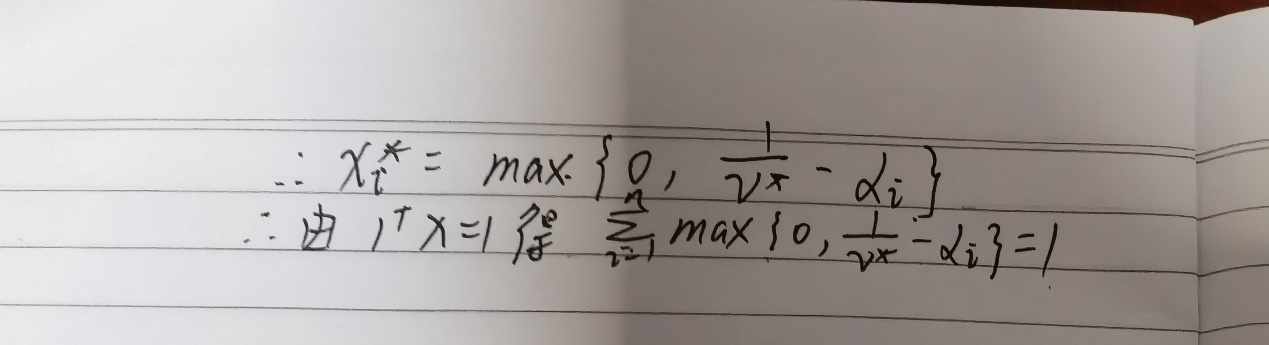 ∴ x_i^* = max. {0, \frac{1}{ν^*} - α_i}
∴ 由 1^T x = 1 得 \sum_{i=1}^{n} max {0, \frac{1}{ν^*} - α_i} = 1